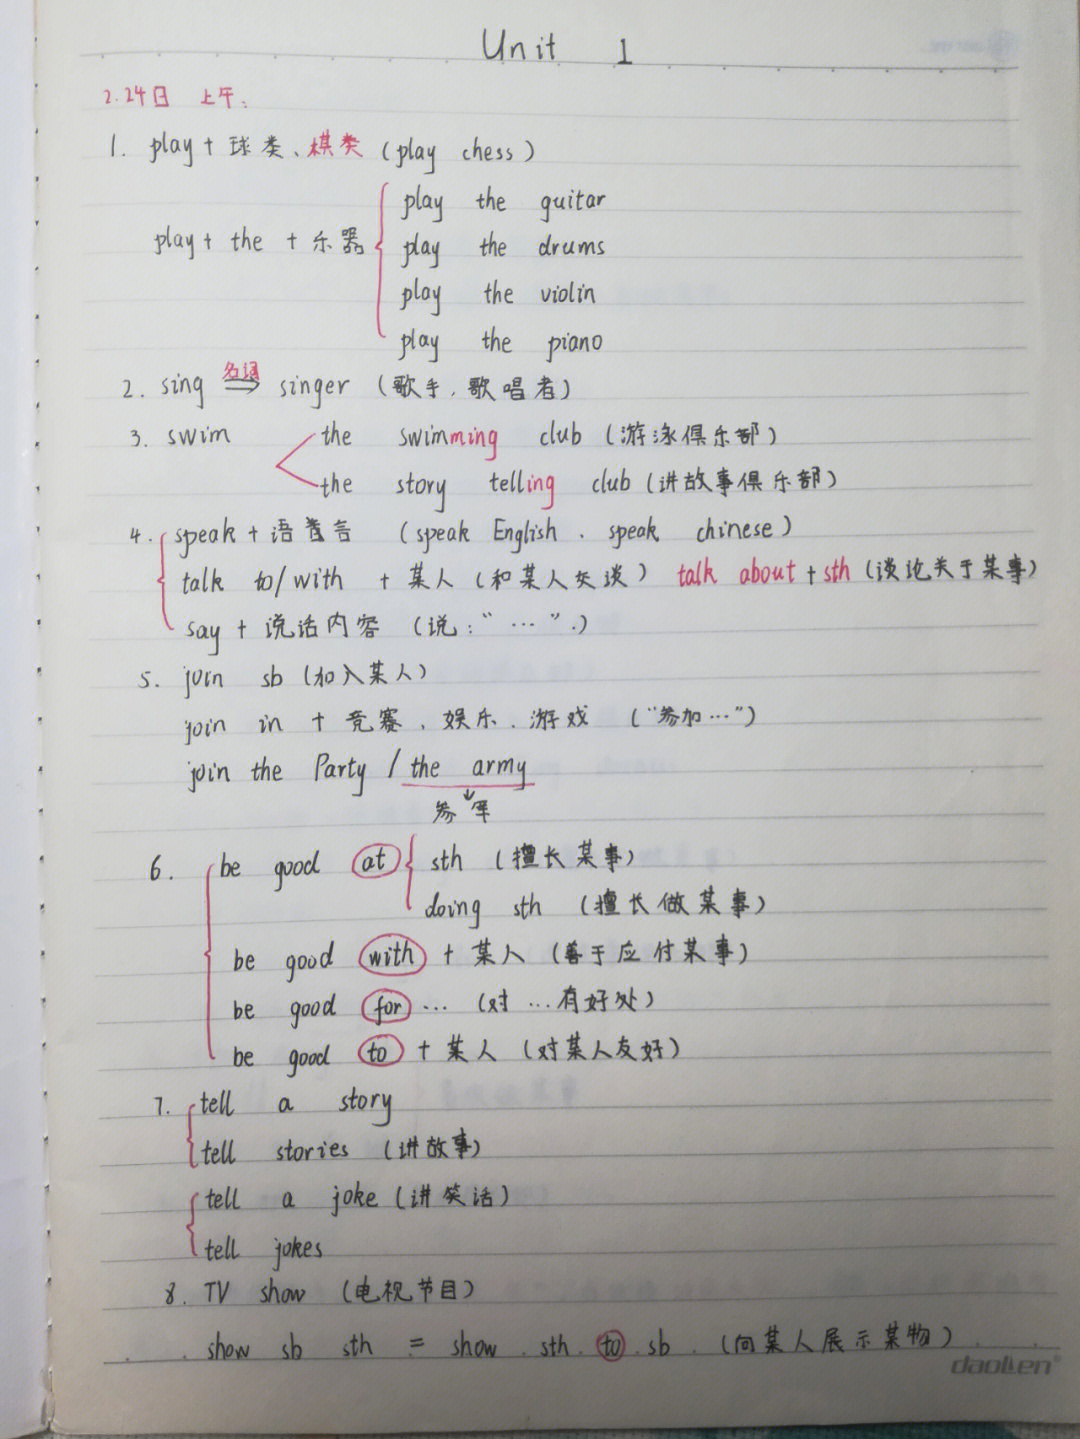 Unit 1
2.24日 上午:
1. play + 球类、棋类 (play chess)
play the guitar
play + the + 乐器
play the drums
play the violin
play the piano
2. sing 名词 ⇒ singer (歌手,歌唱者)
3. swim
the swimming club (游泳俱乐部)
the story telling club (讲故事俱乐部)
4. speak + 语言 (speak English、speak chinese)
talk to/with + 某人 (和某人交谈) talk about + sth (谈论关于某事)
say + 说话内容 (说:“…”.)
5. join sb (加入某人)
join in + 竞赛、娱乐、游戏 (“参加…”)
join the Party / the army
↓
参军
6. be good at
sth (擅长某事)
doing sth (擅长做某事)
be good with + 某人 (善于应付某事)
be good for … (对…有好处)
be good to + 某人 (对某人友好)
7. tell a story
tell stories (讲故事)
tell a joke (讲笑话)
tell jokes
8. TV show (电视节目)
show sb sth = show sth to sb (向某人展示某物)
daolien